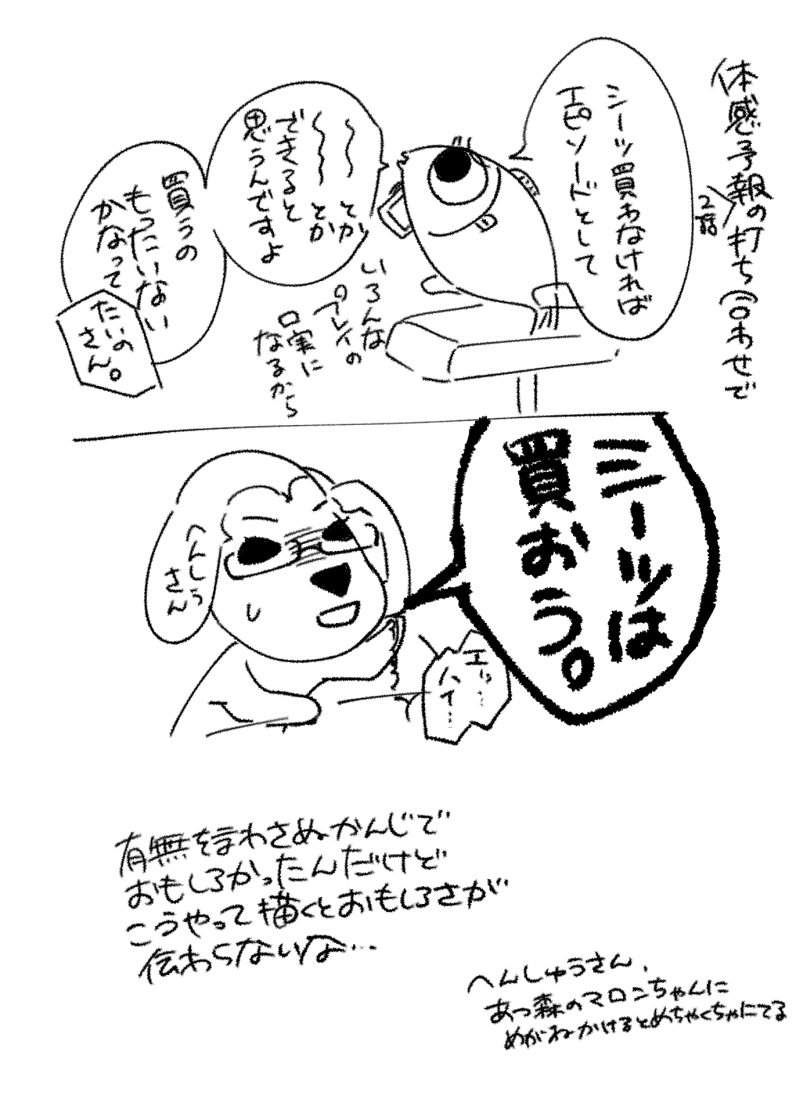 体感予報の打ち合わせで
2話
シーツ買わなければ
エピソードとして
〜〜とか
〜〜〜とか
できると
思うんですよ
いろんな
プレイの
口実に
なるから
買うの
もったいない
かなって
たいの
さん。
シーツは
買おう。
へんしう
さん
エッ…
ハイ…
有無を言わさぬかんじで
おもしろかったんだけど
こうやって描くとおもしろさが
伝わらないな…
へんしゅうさん、
あつ森のマロンちゃんに
めがねかけるとめちゃくちゃにてる